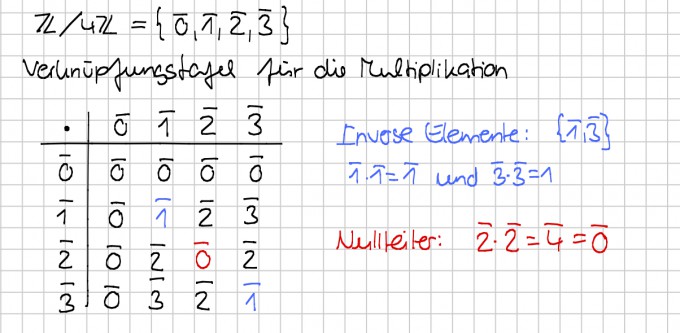 ℤ/4ℤ = {0̅, 1̅, 2̅, 3̅}
Verknüpfungstafel für die Multiplikation
· | 0̅ 1̅ 2̅ 3̅
0̅ | 0̅ 0̅ 0̅ 0̅
1̅ | 0̅ 1̅ 2̅ 3̅
2̅ | 0̅ 2̅ 0̅ 2̅
3̅ | 0̅ 3̅ 2̅ 1̅
Inverse Elemente: {1̅,3̅}
1̅·1̅=1̅ und 3̅·3̅=1
Nullteiler: 2̅·2̅=4̅=0̅